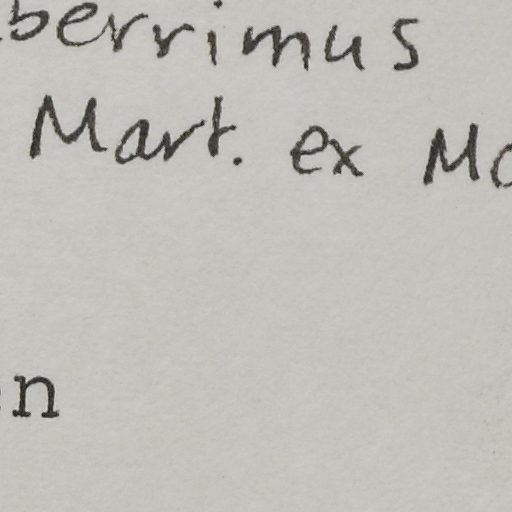 berrimus
Mart. ex Mo
n